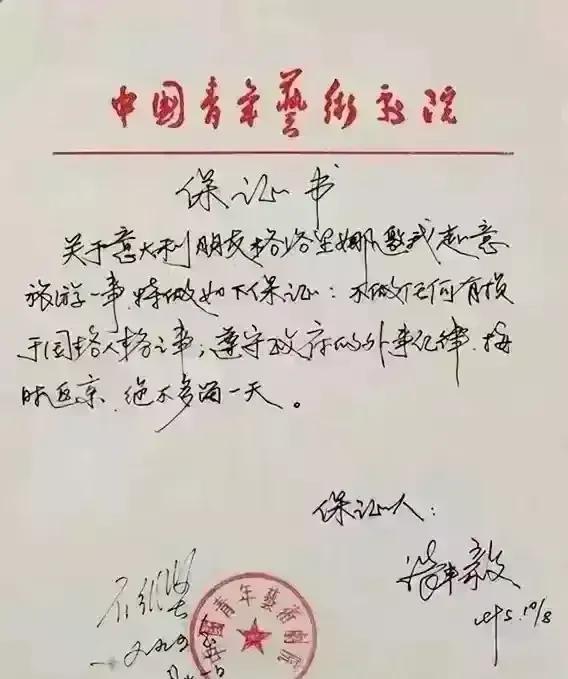 中国青年藝術剧院
保证书
关于意大利朋友格洛里娜邀我赴意
旅游一事,特做如下保证:不做任何有损
于国格人格之事;遵守政府的外事纪律,按
时返京,绝不多留一天。
保证人:
石维坚
中国青年藝術劇院